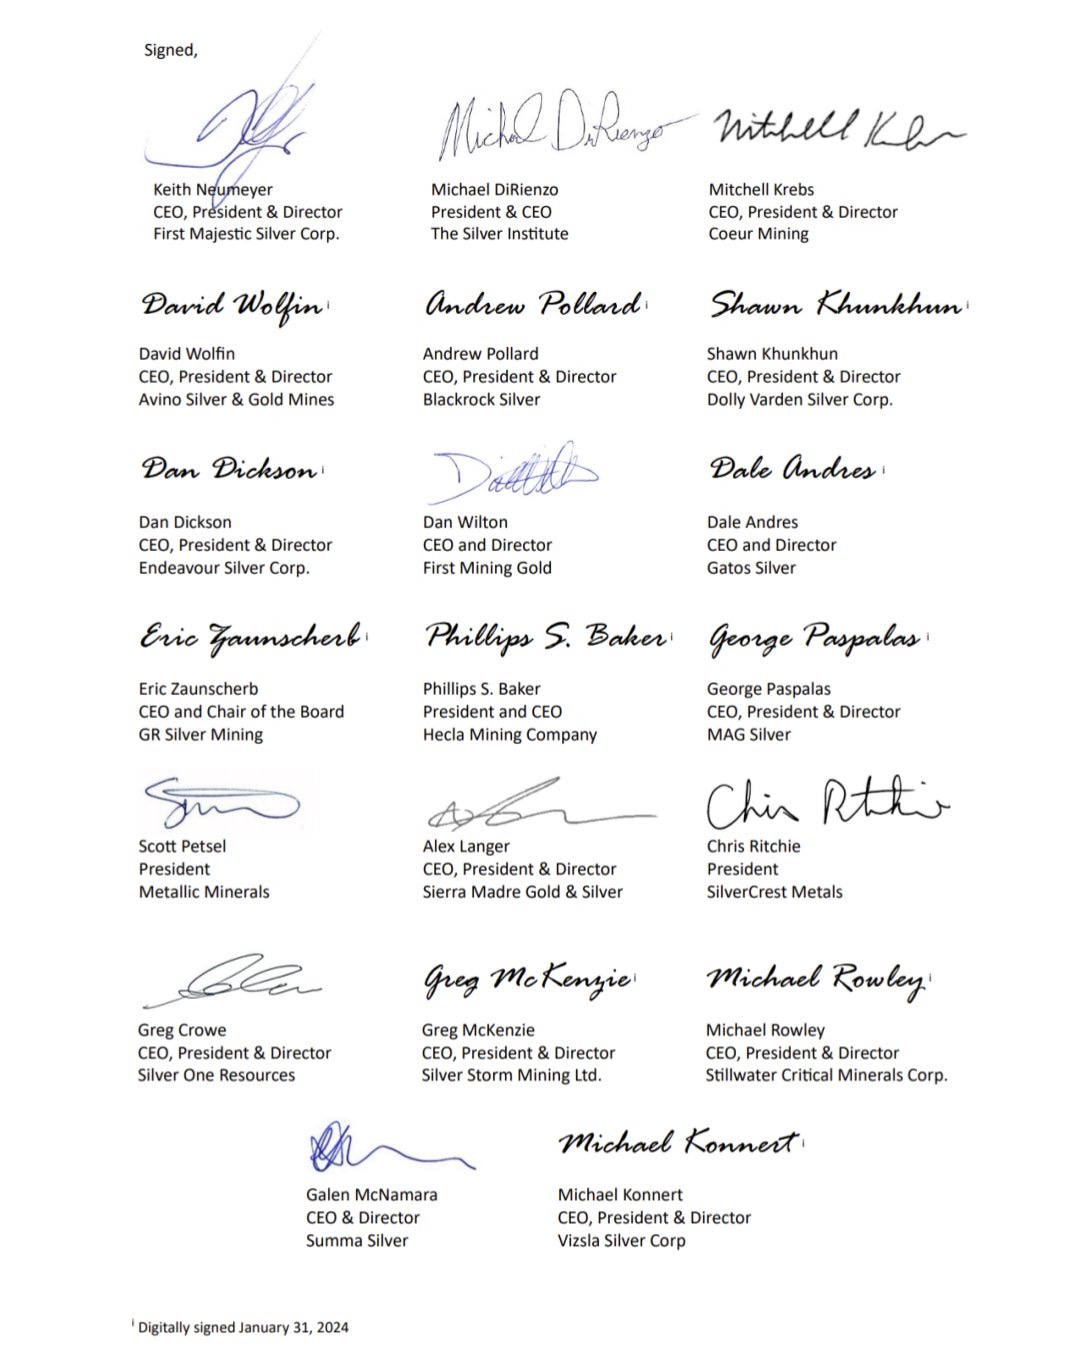 Signed,
Michael DiRienzo
Mitchell K
Keith Neumeyer
CEO, President & Director
First Majestic Silver Corp.
Michael DiRienzo
President & CEO
The Silver Institute
Mitchell Krebs
CEO, President & Director
Coeur Mining
David Wolfin i
Andrew Pollard i
Shawn Khunkhun i
David Wolfin
CEO, President & Director
Avino Silver & Gold Mines
Andrew Pollard
CEO, President & Director
Blackrock Silver
Shawn Khunkhun
CEO, President & Director
Dolly Varden Silver Corp.
Dan Dickson i
Dale Andres i
Dan Dickson
CEO, President & Director
Endeavour Silver Corp.
Dan Wilton
CEO and Director
First Mining Gold
Dale Andres
CEO and Director
Gatos Silver
Eric Zaunscherb i
Phillips S. Baker i
George Paspalas i
Eric Zaunscherb
CEO and Chair of the Board
GR Silver Mining
Phillips S. Baker
President and CEO
Hecla Mining Company
George Paspalas
CEO, President & Director
MAG Silver
Chris Ritchie
Scott Petsel
President
Metallic Minerals
Alex Langer
CEO, President & Director
Sierra Madre Gold & Silver
Chris Ritchie
President
SilverCrest Metals
Greg McKenzie i
Michael Rowley i
Greg Crowe
CEO, President & Director
Silver One Resources
Greg McKenzie
CEO, President & Director
Silver Storm Mining Ltd.
Michael Rowley
CEO, President & Director
Stillwater Critical Minerals Corp.
Michael Konnert i
Galen McNamara
CEO & Director
Summa Silver
Michael Konnert
CEO, President & Director
Vizsla Silver Corp
i Digitally signed January 31, 2024